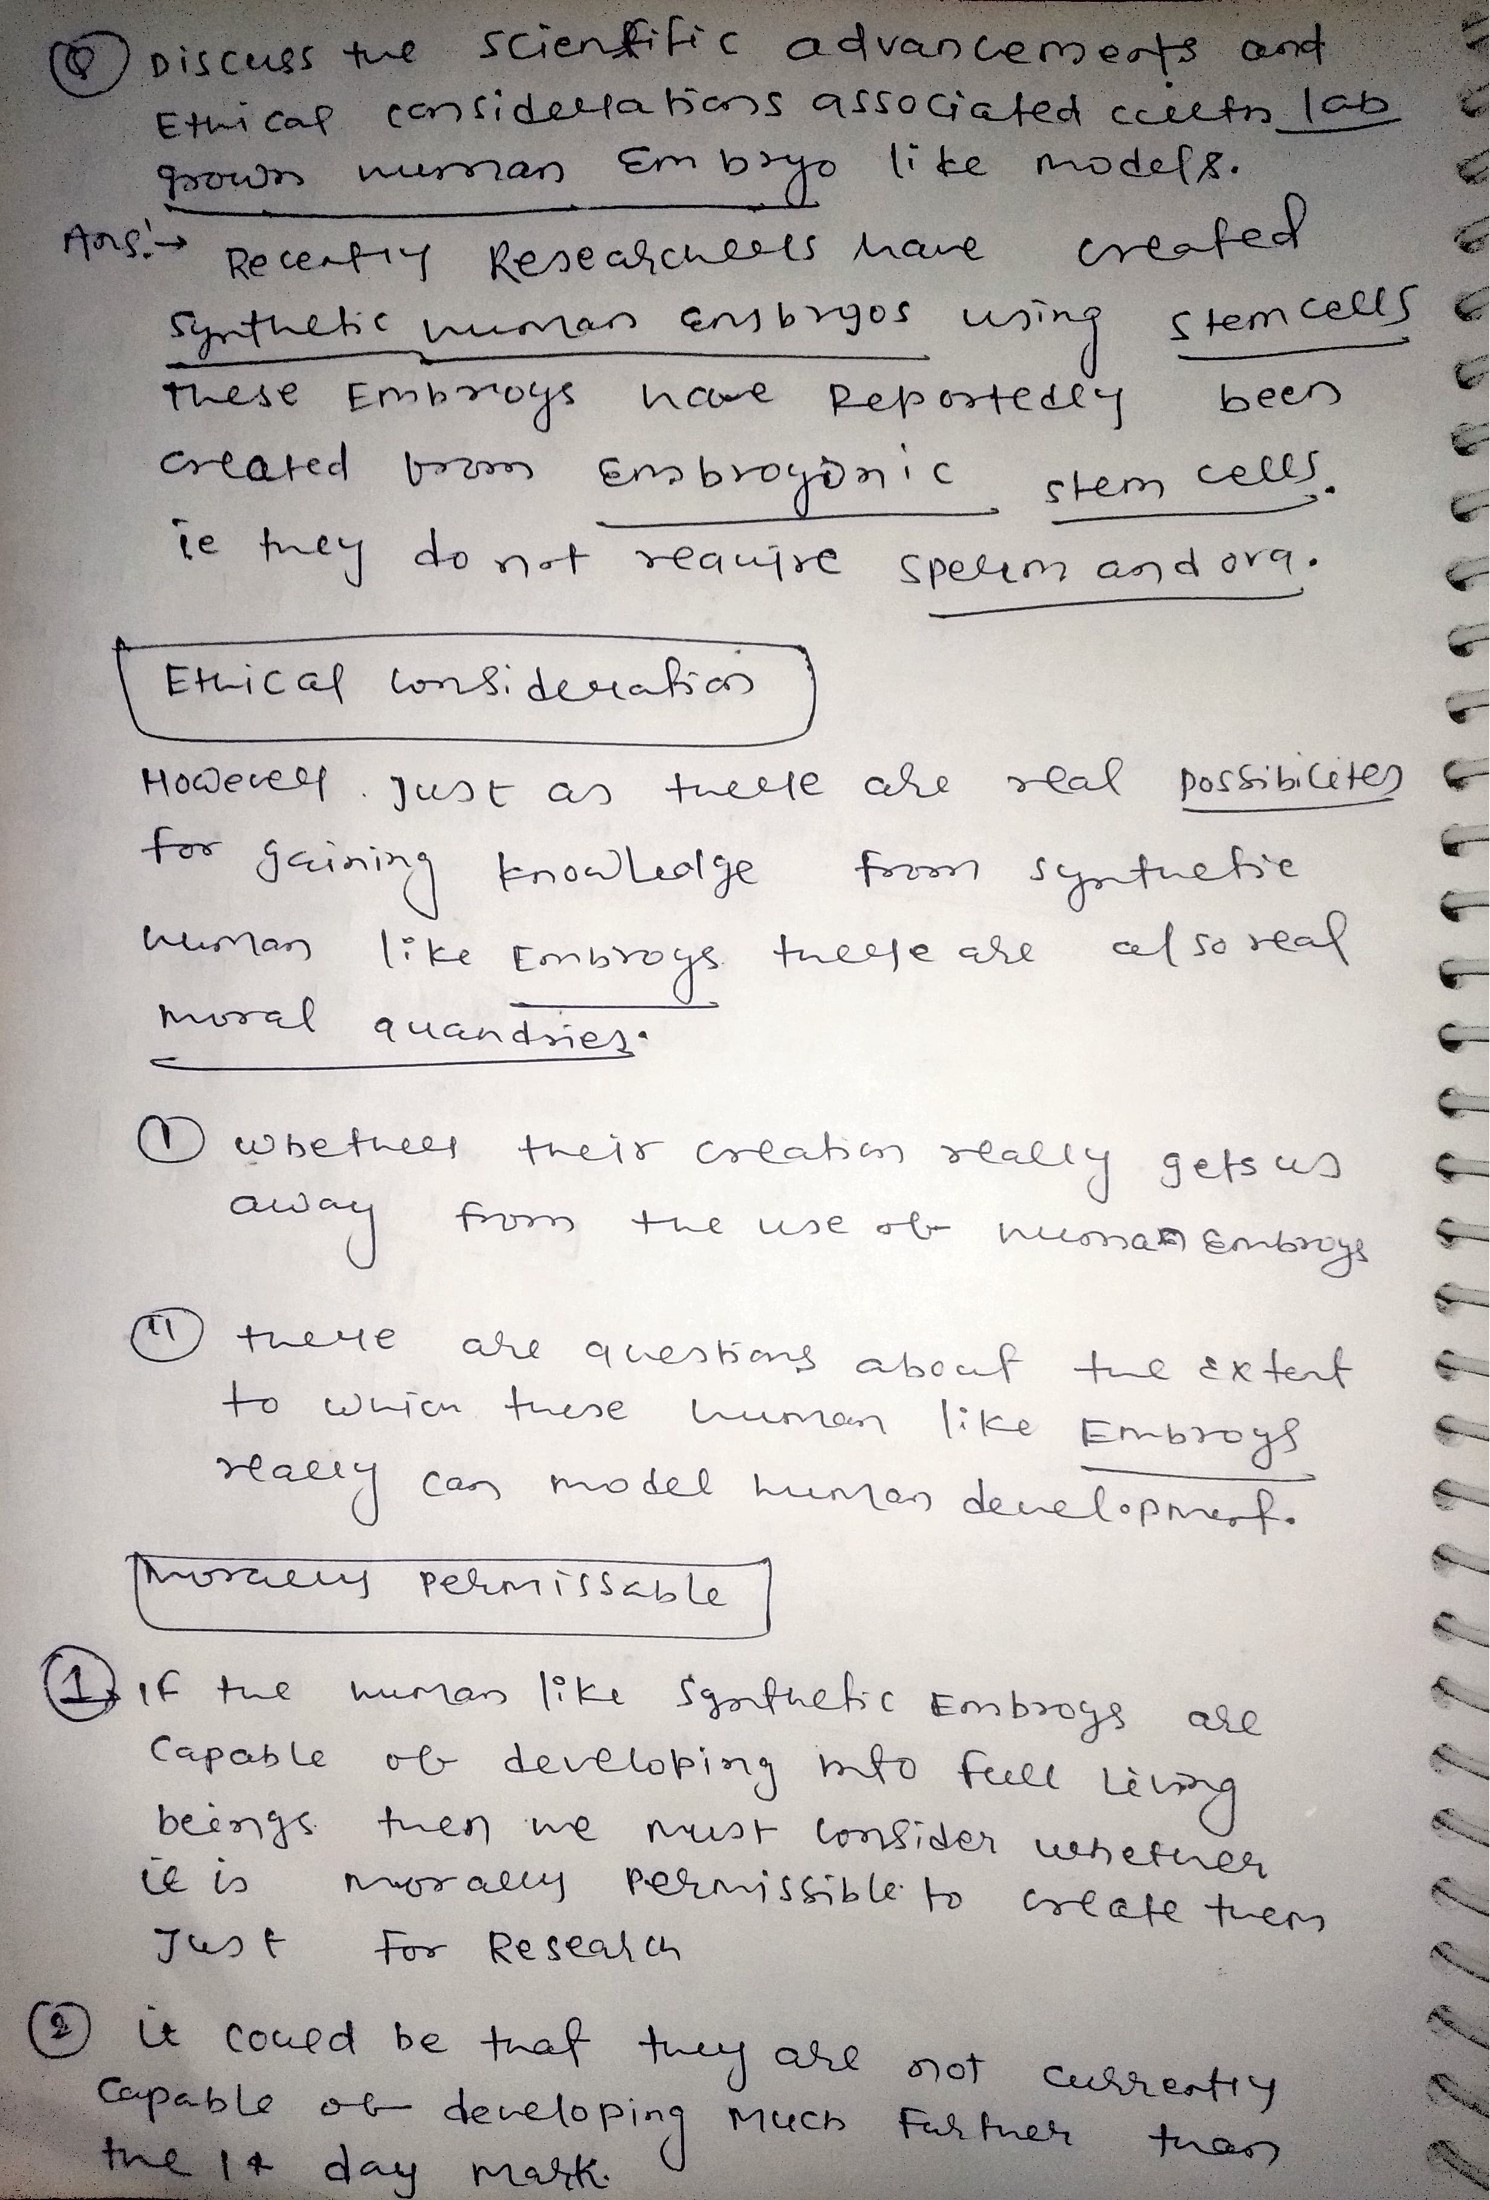 Q Discuss the scientific advancements and
Ethical considerations associated with lab
grown human Embryo like models.
Ans:→ Recently Researchers have created
synthetic human embryos using stem cells
These Embroys have Reportedly been
created from Embroyonic stem cells.
ie they do not require sperm and ova.
Ethical consideration
However. Just as there are real possibilites
for gaining knowledge from synthetic
human like Embroys. there are also real
moral quandries.
(i) whether their creation really gets us
away from the use of human Embroys
(ii) there are questions about the Extent
to which these human like Embroys
really can model human development.
Morally permissable
(1) If the human like Synthetic Embroys are
Capable of developing into full living
beings. then we must consider whether
it is morally permissible to create them
Just For Research
(2) it could be that they are not currently
Capable of developing much further than
the 14 day mark.